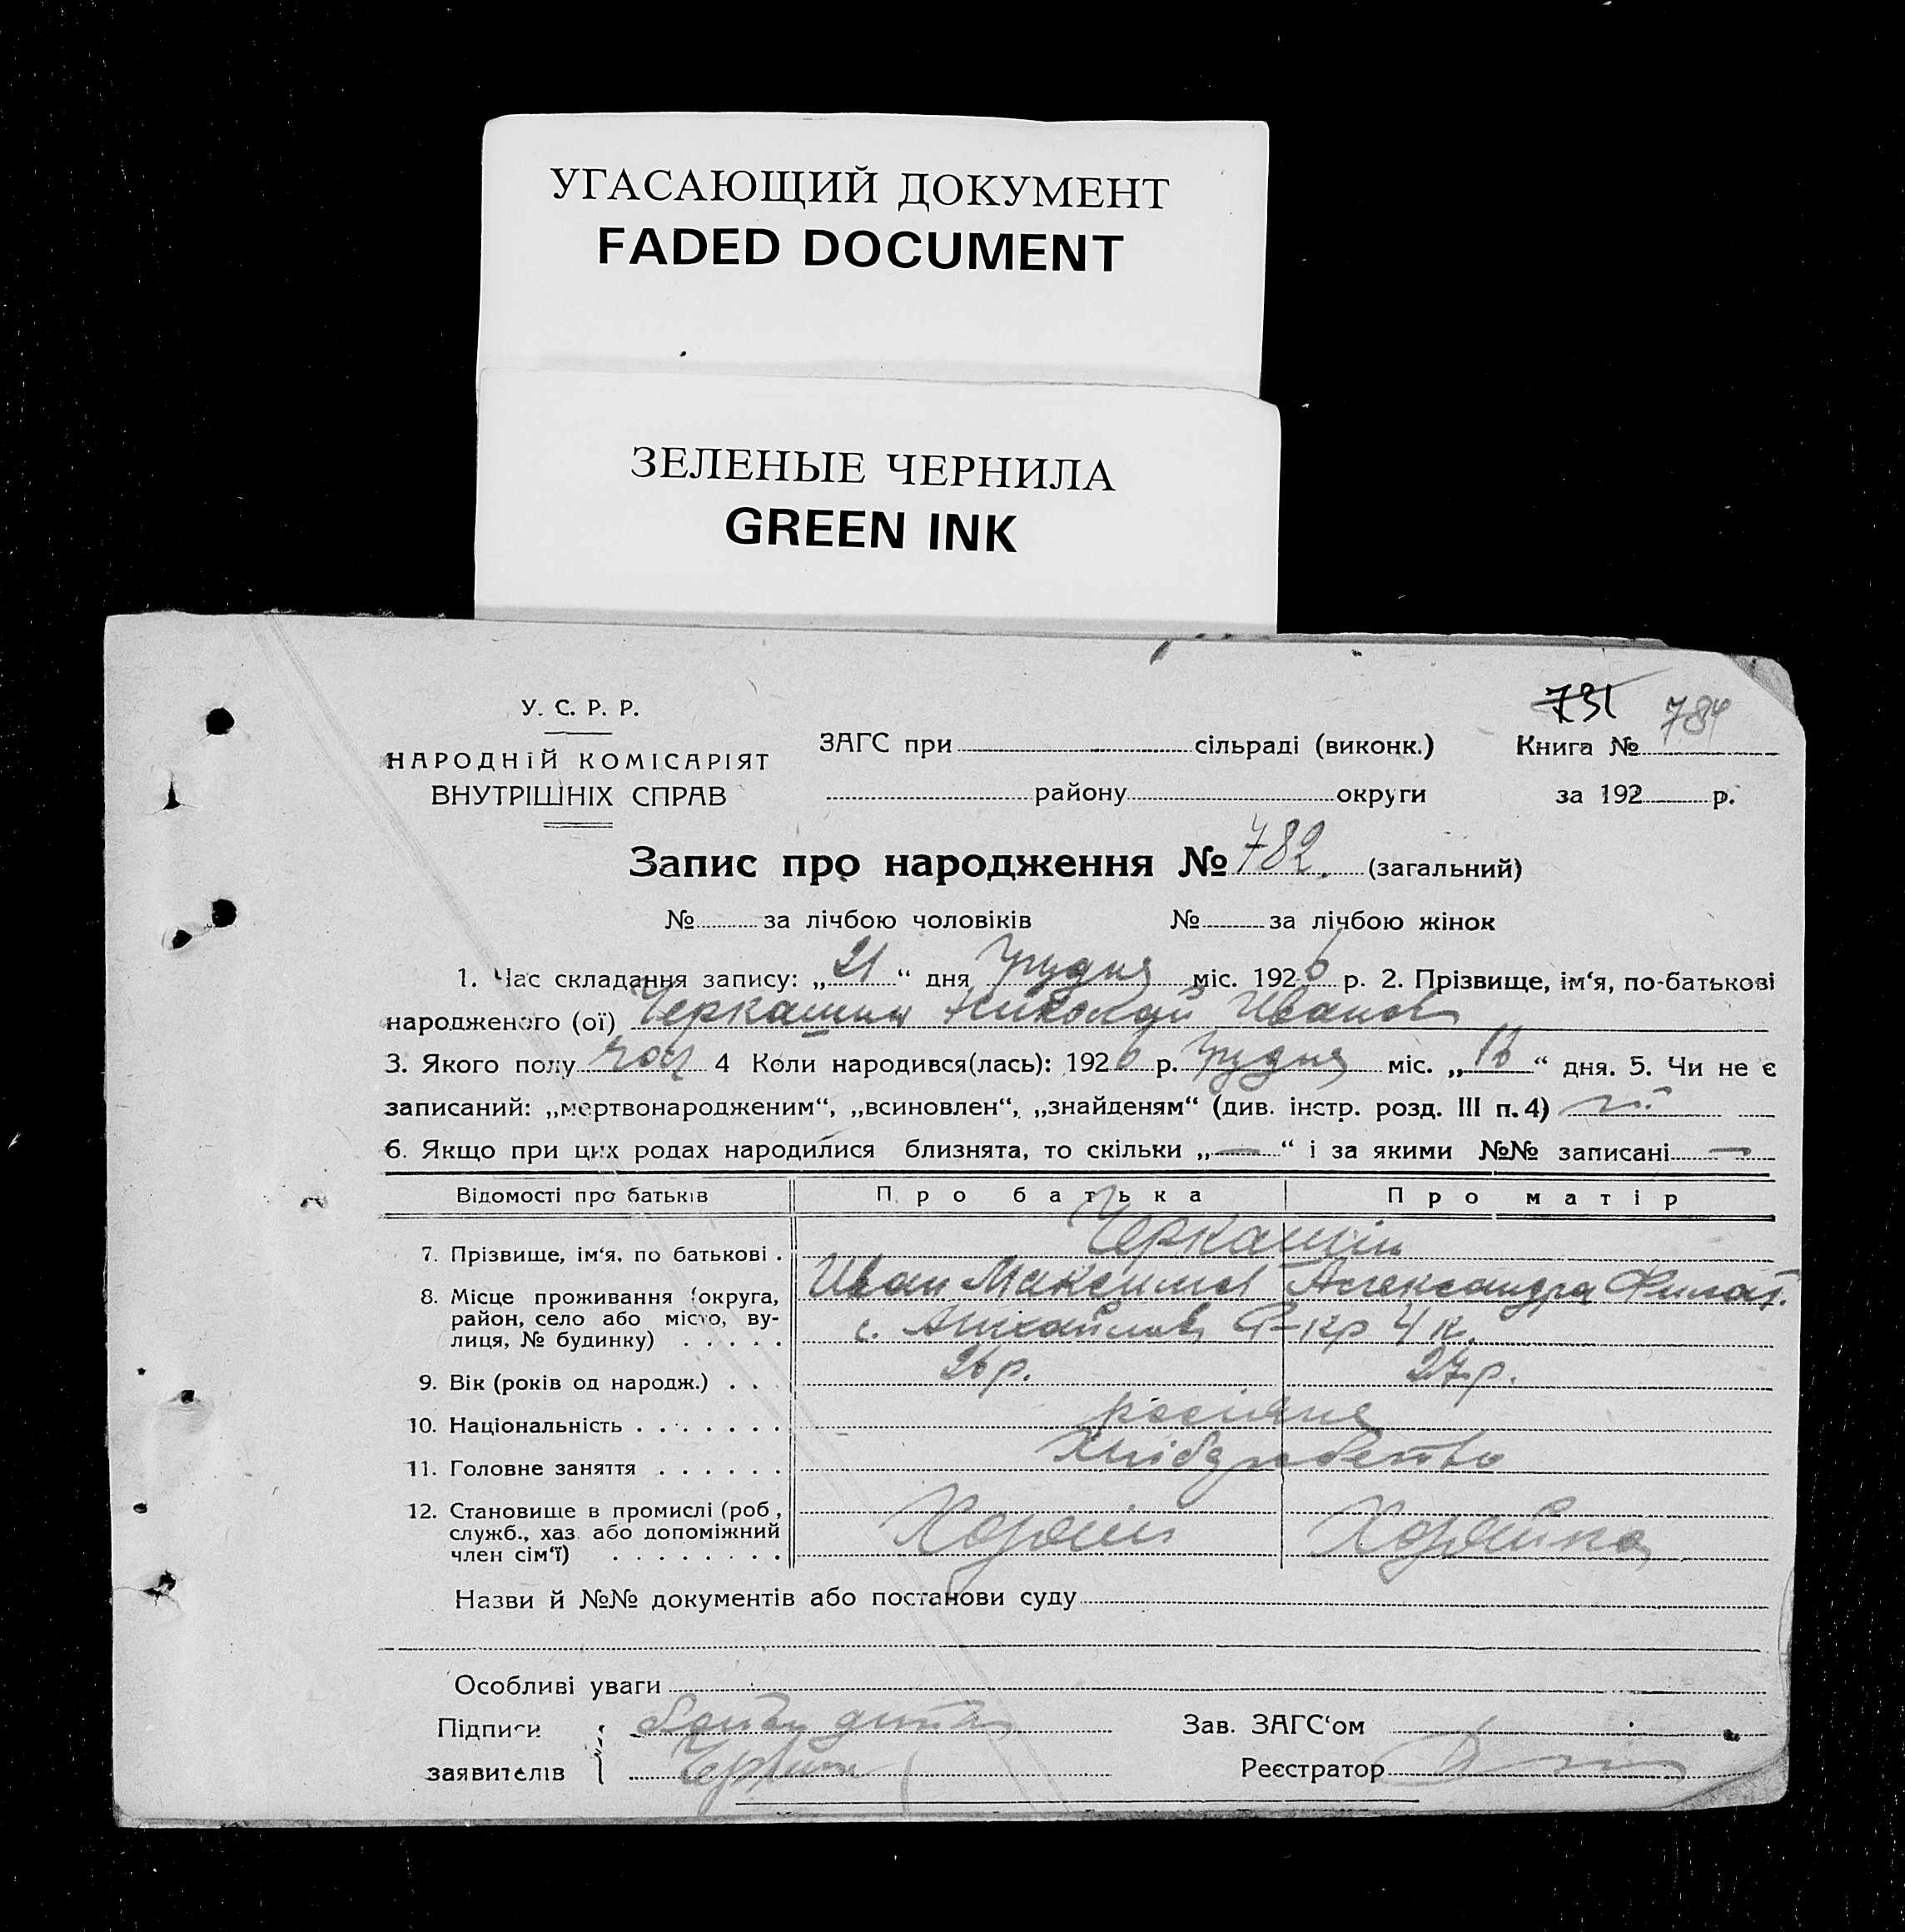 УГАСАЮЩИЙ ДОКУМЕНТ
FADED DOCUMENT
ЗЕЛЕНЫЕ ЧЕРНИЛА
GREEN INK
731 784
У. С. Р. Р.
НАРОДНІЙ КОМІСАРІЯТ
ВНУТРІШНІХ СПРАВ
ЗАГС при сільраді (виконк.) Книга №
району округи за 192 р.
Запис про народження № 782. (загальний)
№ за лічбою чоловіків № за лічбою жінок
1. Час складання запису: „21“ дня Грудня міс. 1926 р. 2. Прізвище, ім‘я, по-батькові
народженого (ої) Черкашин Николай Иванов
3. Якого полу чол 4 Коли народився(лась): 1926 р. Грудня міс. „16“ дня. 5. Чи не є
записаний: „мертвонародженим“, „всиновлен“, „знайденям“ (див. інстр. розд. III п. 4) ні
6. Якщо при цих родах народилися близнята, то скільки „—“ і за якими №№ записані —
Відомості про батьків Про батька Про матір
7. Прізвище, ім‘я, по батькові . Черкашин
Иван Максимов Александра Филат.
8. Місце проживання (округа,
район, село або місто, ву-
лиця, № будинку) . . . . . с. Михайлов
9. Вік (років од народж.) . . . 26 р. 27 р.
10. Національність . . . . . . . росіяне
11. Головне заняття . . . . . . Хліборобство
12. Становище в промислі (роб,
служб., хаз. або допоміжний
член сім‘ї) . . . . . . . . Хозяїн Хозяйка
Назви й №№ документів або постанови суду
Особливі уваги
Підписи Зав. ЗАГС‘ом
заявителів Реєстратор